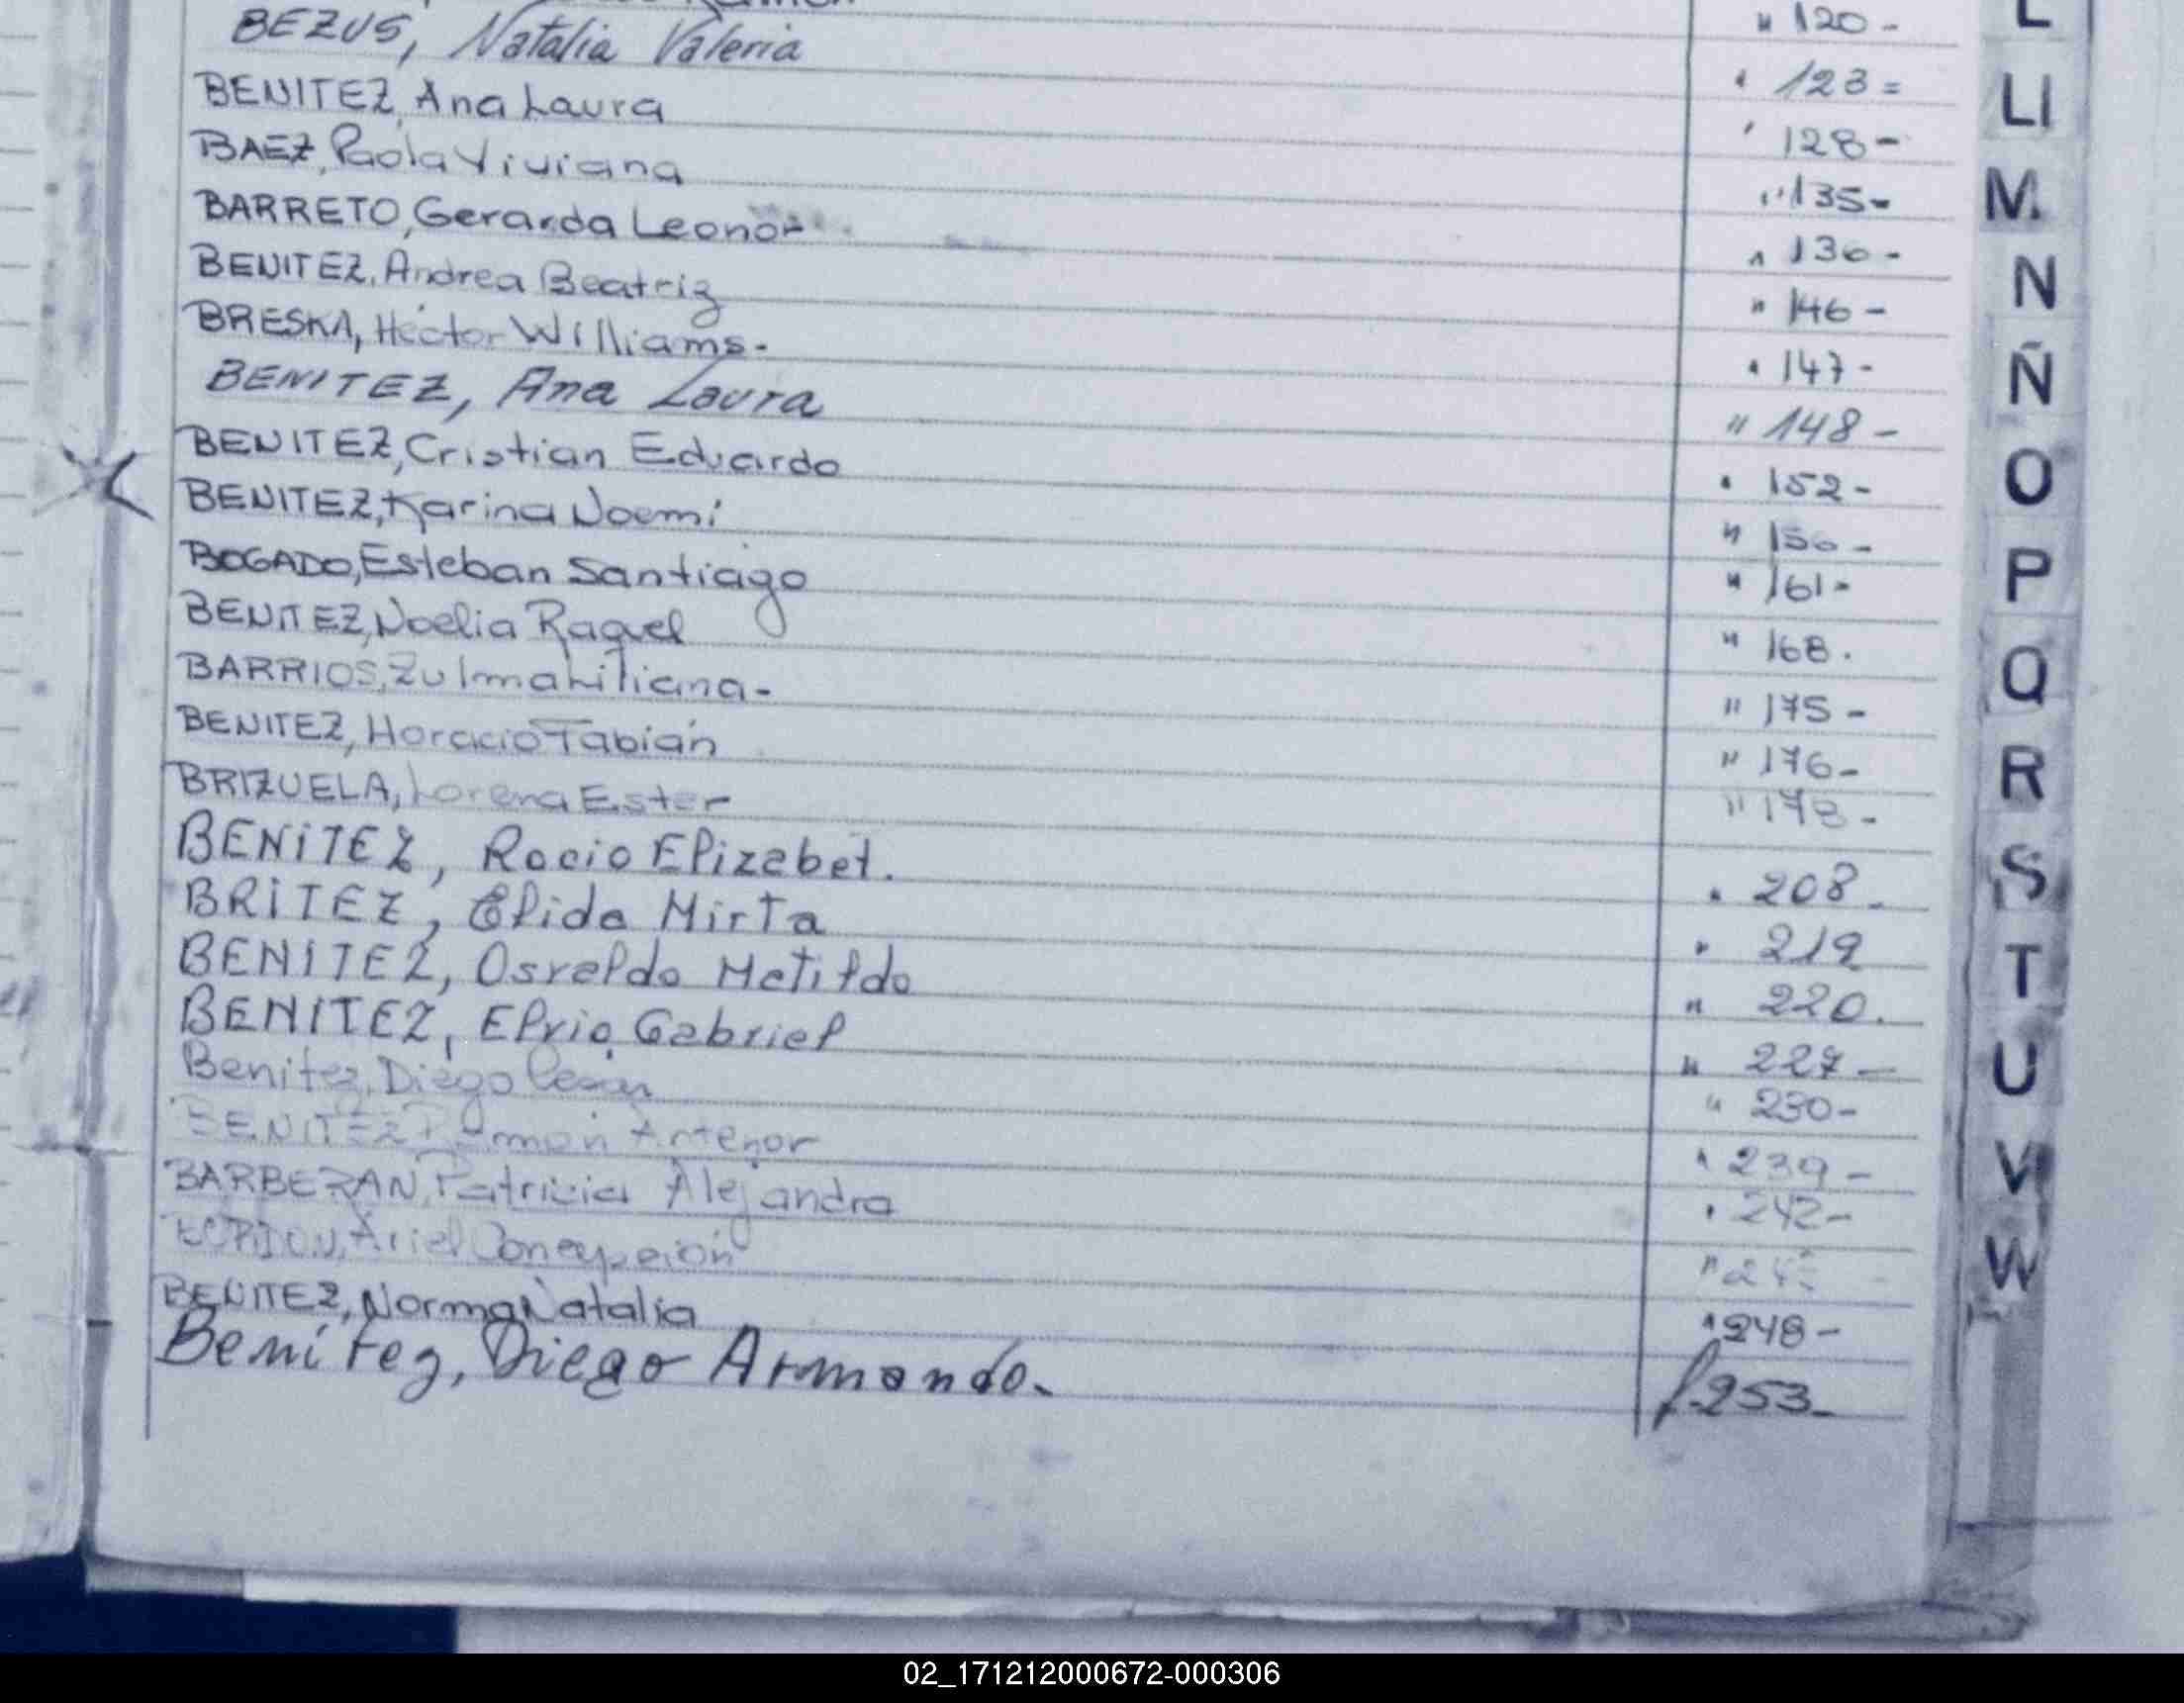 " 120-
BEZUS, Natalia Valeria " 123=
BENITEZ, Ana Laura " 128-
BAEZ, Paola Viviana " 135-
BARRETO, Gerarda Leonor " 136-
BENITEZ, Andrea Beatriz " 146-
BRESKA, Hector Williams- " 147-
BENITEZ, Ana Laura " 148-
BENITEZ, Cristian Eduardo " 152-
BENITEZ, Karina Noemi " 156-
BOGADO, Esteban Santiago " 161-
BENITEZ, Noelia Raquel " 168.
BARRIOS, Zulma Liliana- " 175-
BENITEZ, Horacio Fabián " 176-
BRIZUELA, Lorena Ester " 178-
BENITEZ, Rocio Elizabet. " 208-
BRITEZ, Elida Mirta " 219
BENITEZ, Osvaldo Matildo " 220.
BENITEZ, Elvio Gabriel " 227-
Benitez, Diego Cesar " 230-
BENITEZ Ramon Antenor " 239-
BARBERAN, Patricia Alejandra " 242-
Ariel Concepción
BENITEZ, Norma Natalia " 248-
Benítez, Diego Armando. f.253-
L
LI
M
N
Ñ
O
P
Q
R
S
T
U
V
W
02_171212000672-000306